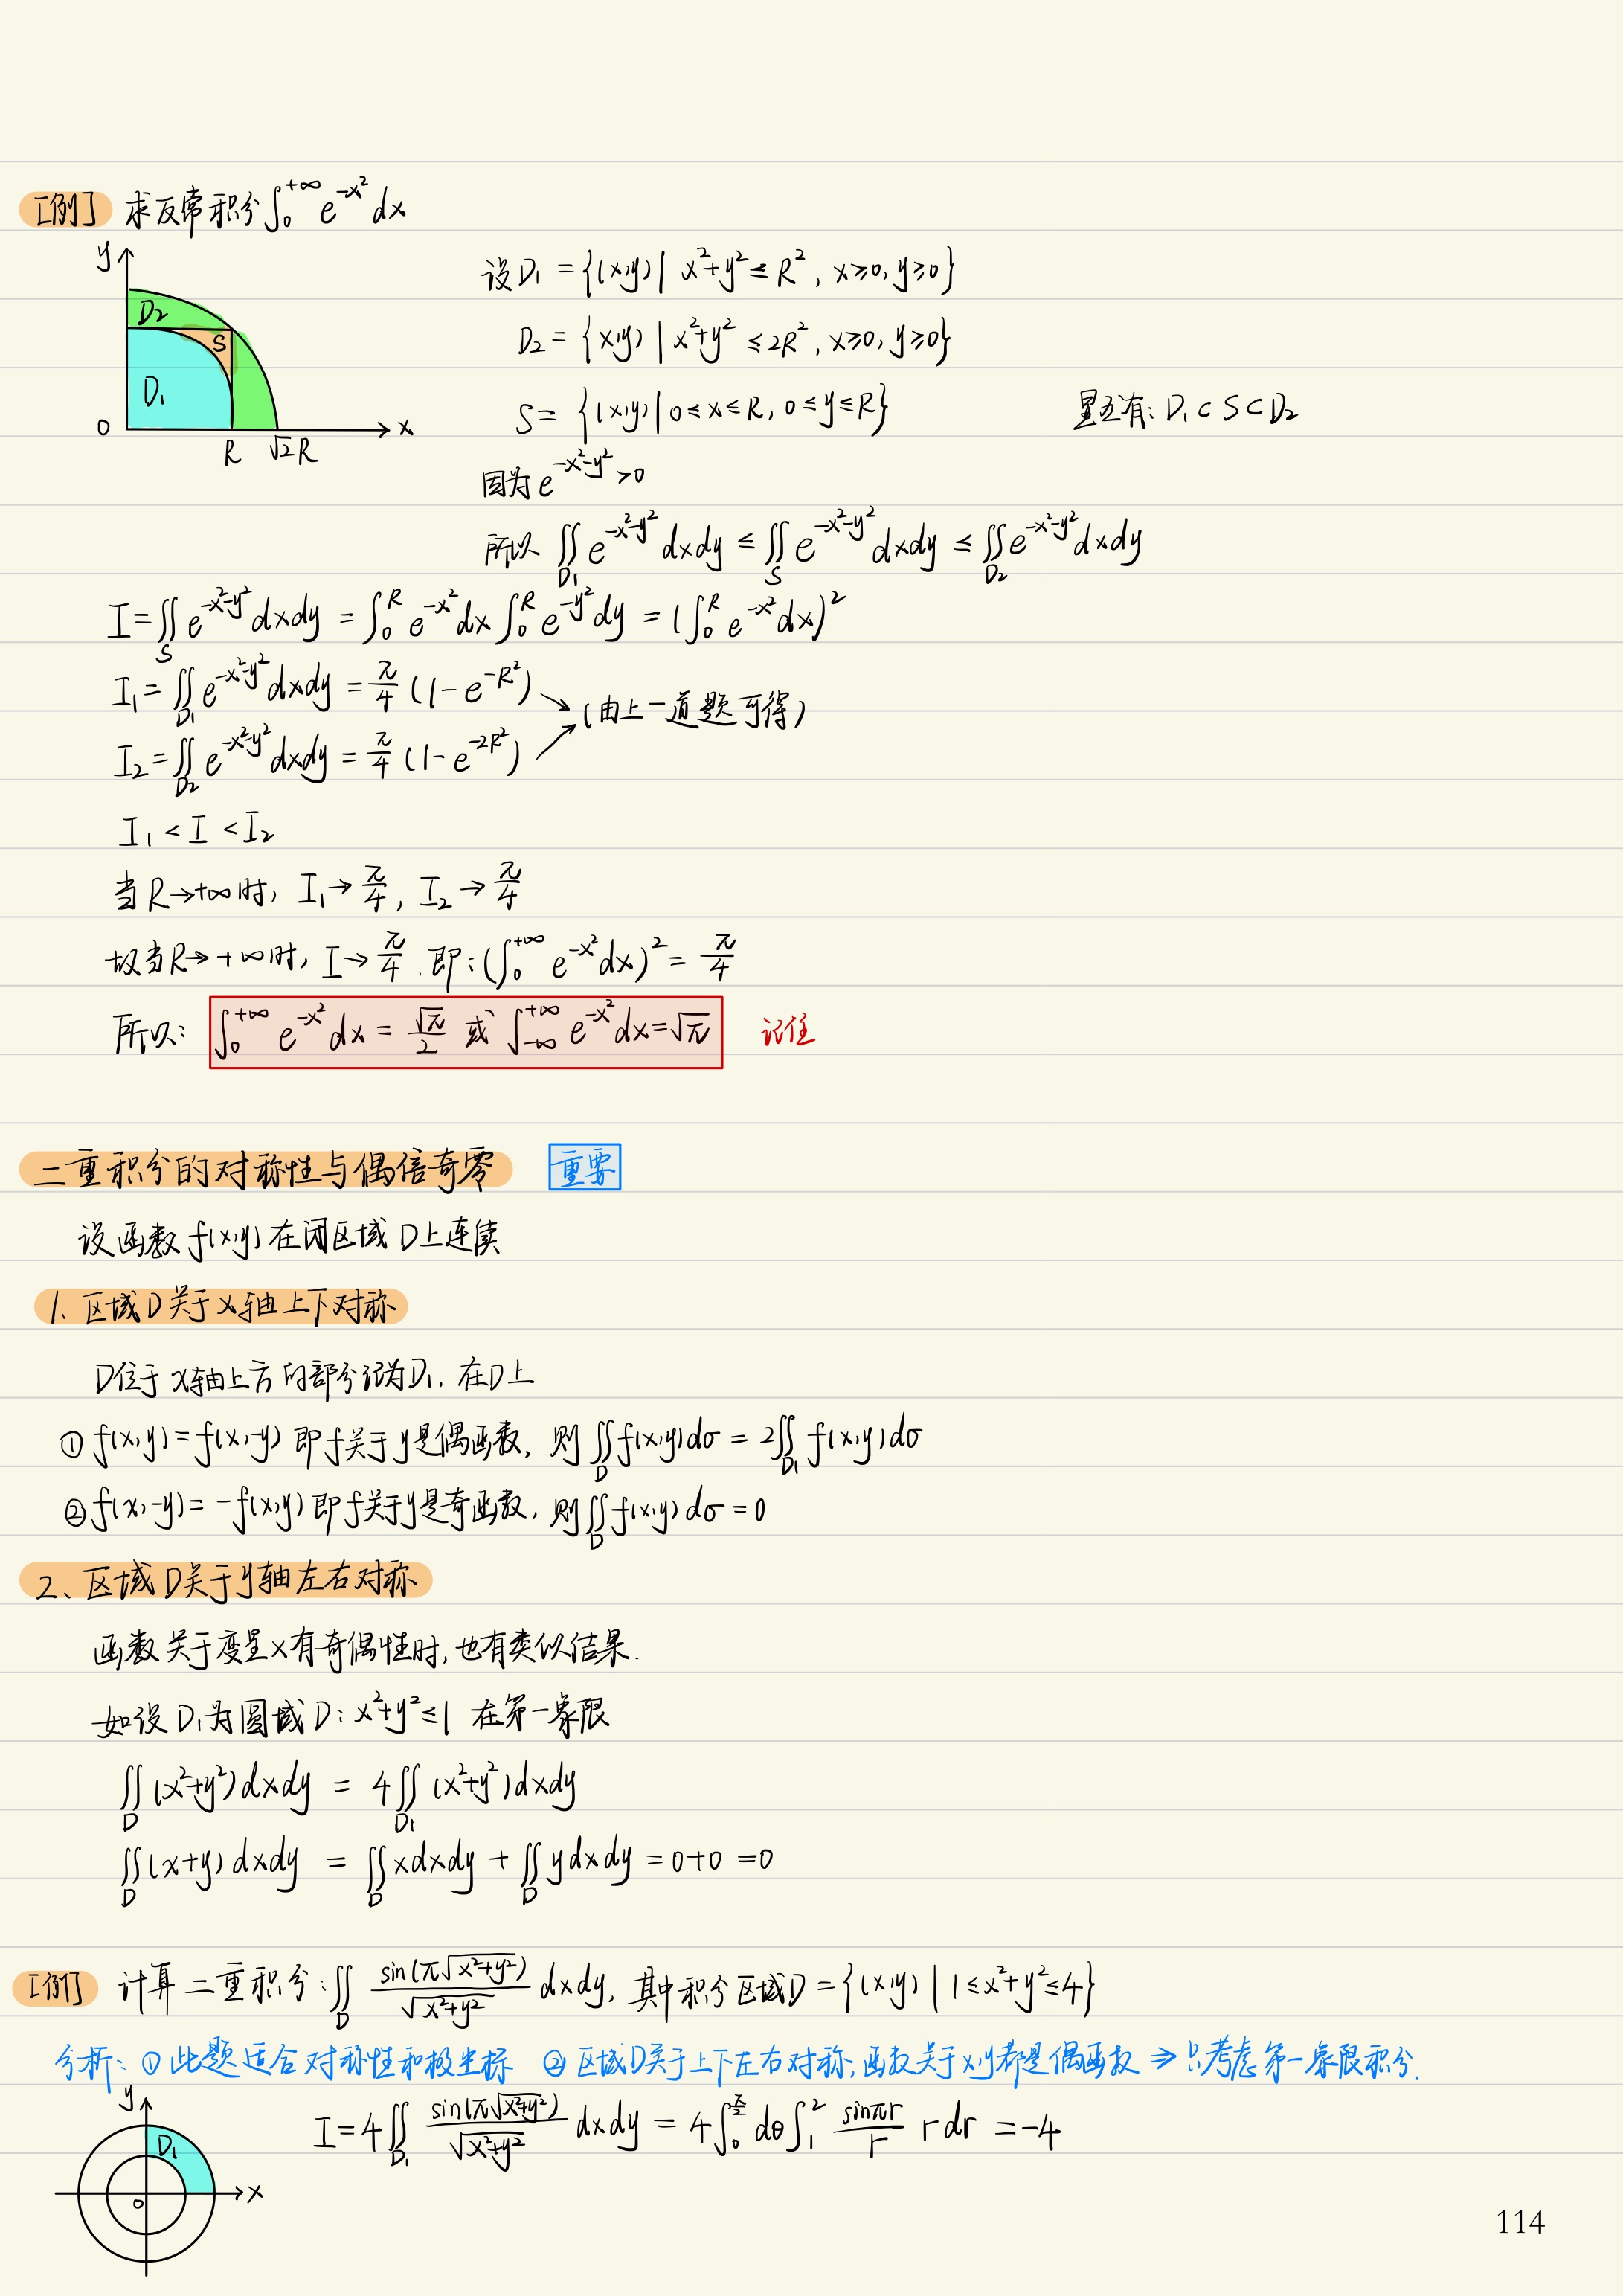 [例] 求反常积分∫₀^{+∞} e^{-x²}dx
y
D₂
S
D₁
0
R
√2R
x
设D₁ = {(x,y) | x²+y² ≤ R², x≥0, y≥0}
D₂ = {x,y) | x²+y² ≤ 2R², x≥0, y≥0}
S = {(x,y) | 0≤x≤R, 0≤y≤R}
显然有: D₁⊂S⊂D₂
因为 e^{-x²-y²} >0
所以 ∬_{D₁} e^{-x²-y²}dxdy ≤ ∬_S e^{-x²-y²}dxdy ≤ ∬_{D₂} e^{-x²-y²}dxdy
I = ∬_S e^{-x²-y²}dxdy = ∫₀^R e^{-x²}dx ∫₀^R e^{-y²}dy = (∫₀^R e^{-x²}dx)²
I₁ = ∬_{D₁} e^{-x²-y²}dxdy = π/4 (1-e^{-R²})
(由上一道题可得)
I₂ = ∬_{D₂} e^{-x²-y²}dxdy = π/4 (1-e^{-2R²})
I₁ < I < I₂
当R→+∞时, I₁→π/4, I₂→π/4
故当R→+∞时, I→π/4. 即: (∫₀^{+∞} e^{-x²}dx)² = π/4
所以: ∫₀^{+∞} e^{-x²}dx = √π/2 或 ∫_{-∞}^{+∞} e^{-x²}dx = √π 记住
二重积分的对称性与偶倍奇零 重要
设函数 f(x,y) 在闭区域 D上连续
1、区域D关于x轴上下对称
D位于x轴上方的部分记为D₁, 在D上
① f(x,y)=f(x,-y) 即f关于y是偶函数, 则∬_D f(x,y)dσ = 2∬_{D₁} f(x,y)dσ
② f(x,-y)=-f(x,y) 即f关于y是奇函数, 则∬_D f(x,y)dσ = 0
2、区域D关于y轴左右对称
函数关于变量x有奇偶性时, 也有类似结果.
如设D₁为圆域D: x²+y²≤1 在第一象限
∬_D (x²+y²)dxdy = 4∬_{D₁} (x²+y²)dxdy
∬_D (x+y)dxdy = ∬_D xdxdy + ∬_D ydxdy = 0+0 = 0
[例] 计算二重积分: ∬_D sin(π√(x²+y²))/√(x²+y²) dxdy, 其中积分区域D = {(x,y) | 1≤x²+y²≤4}
分析: ① 此题适合对称性和极坐标 ② 区域D关于上下左右对称; 函数关于x,y都是偶函数 ⇒ 只考虑第一象限积分.
y
D₁
0
x
I = 4∬_{D₁} sin(π√(x²+y²))/√(x²+y²) dxdy = 4∫₀^{π/2} dθ ∫₁² sinπr/r rdr = -4
114